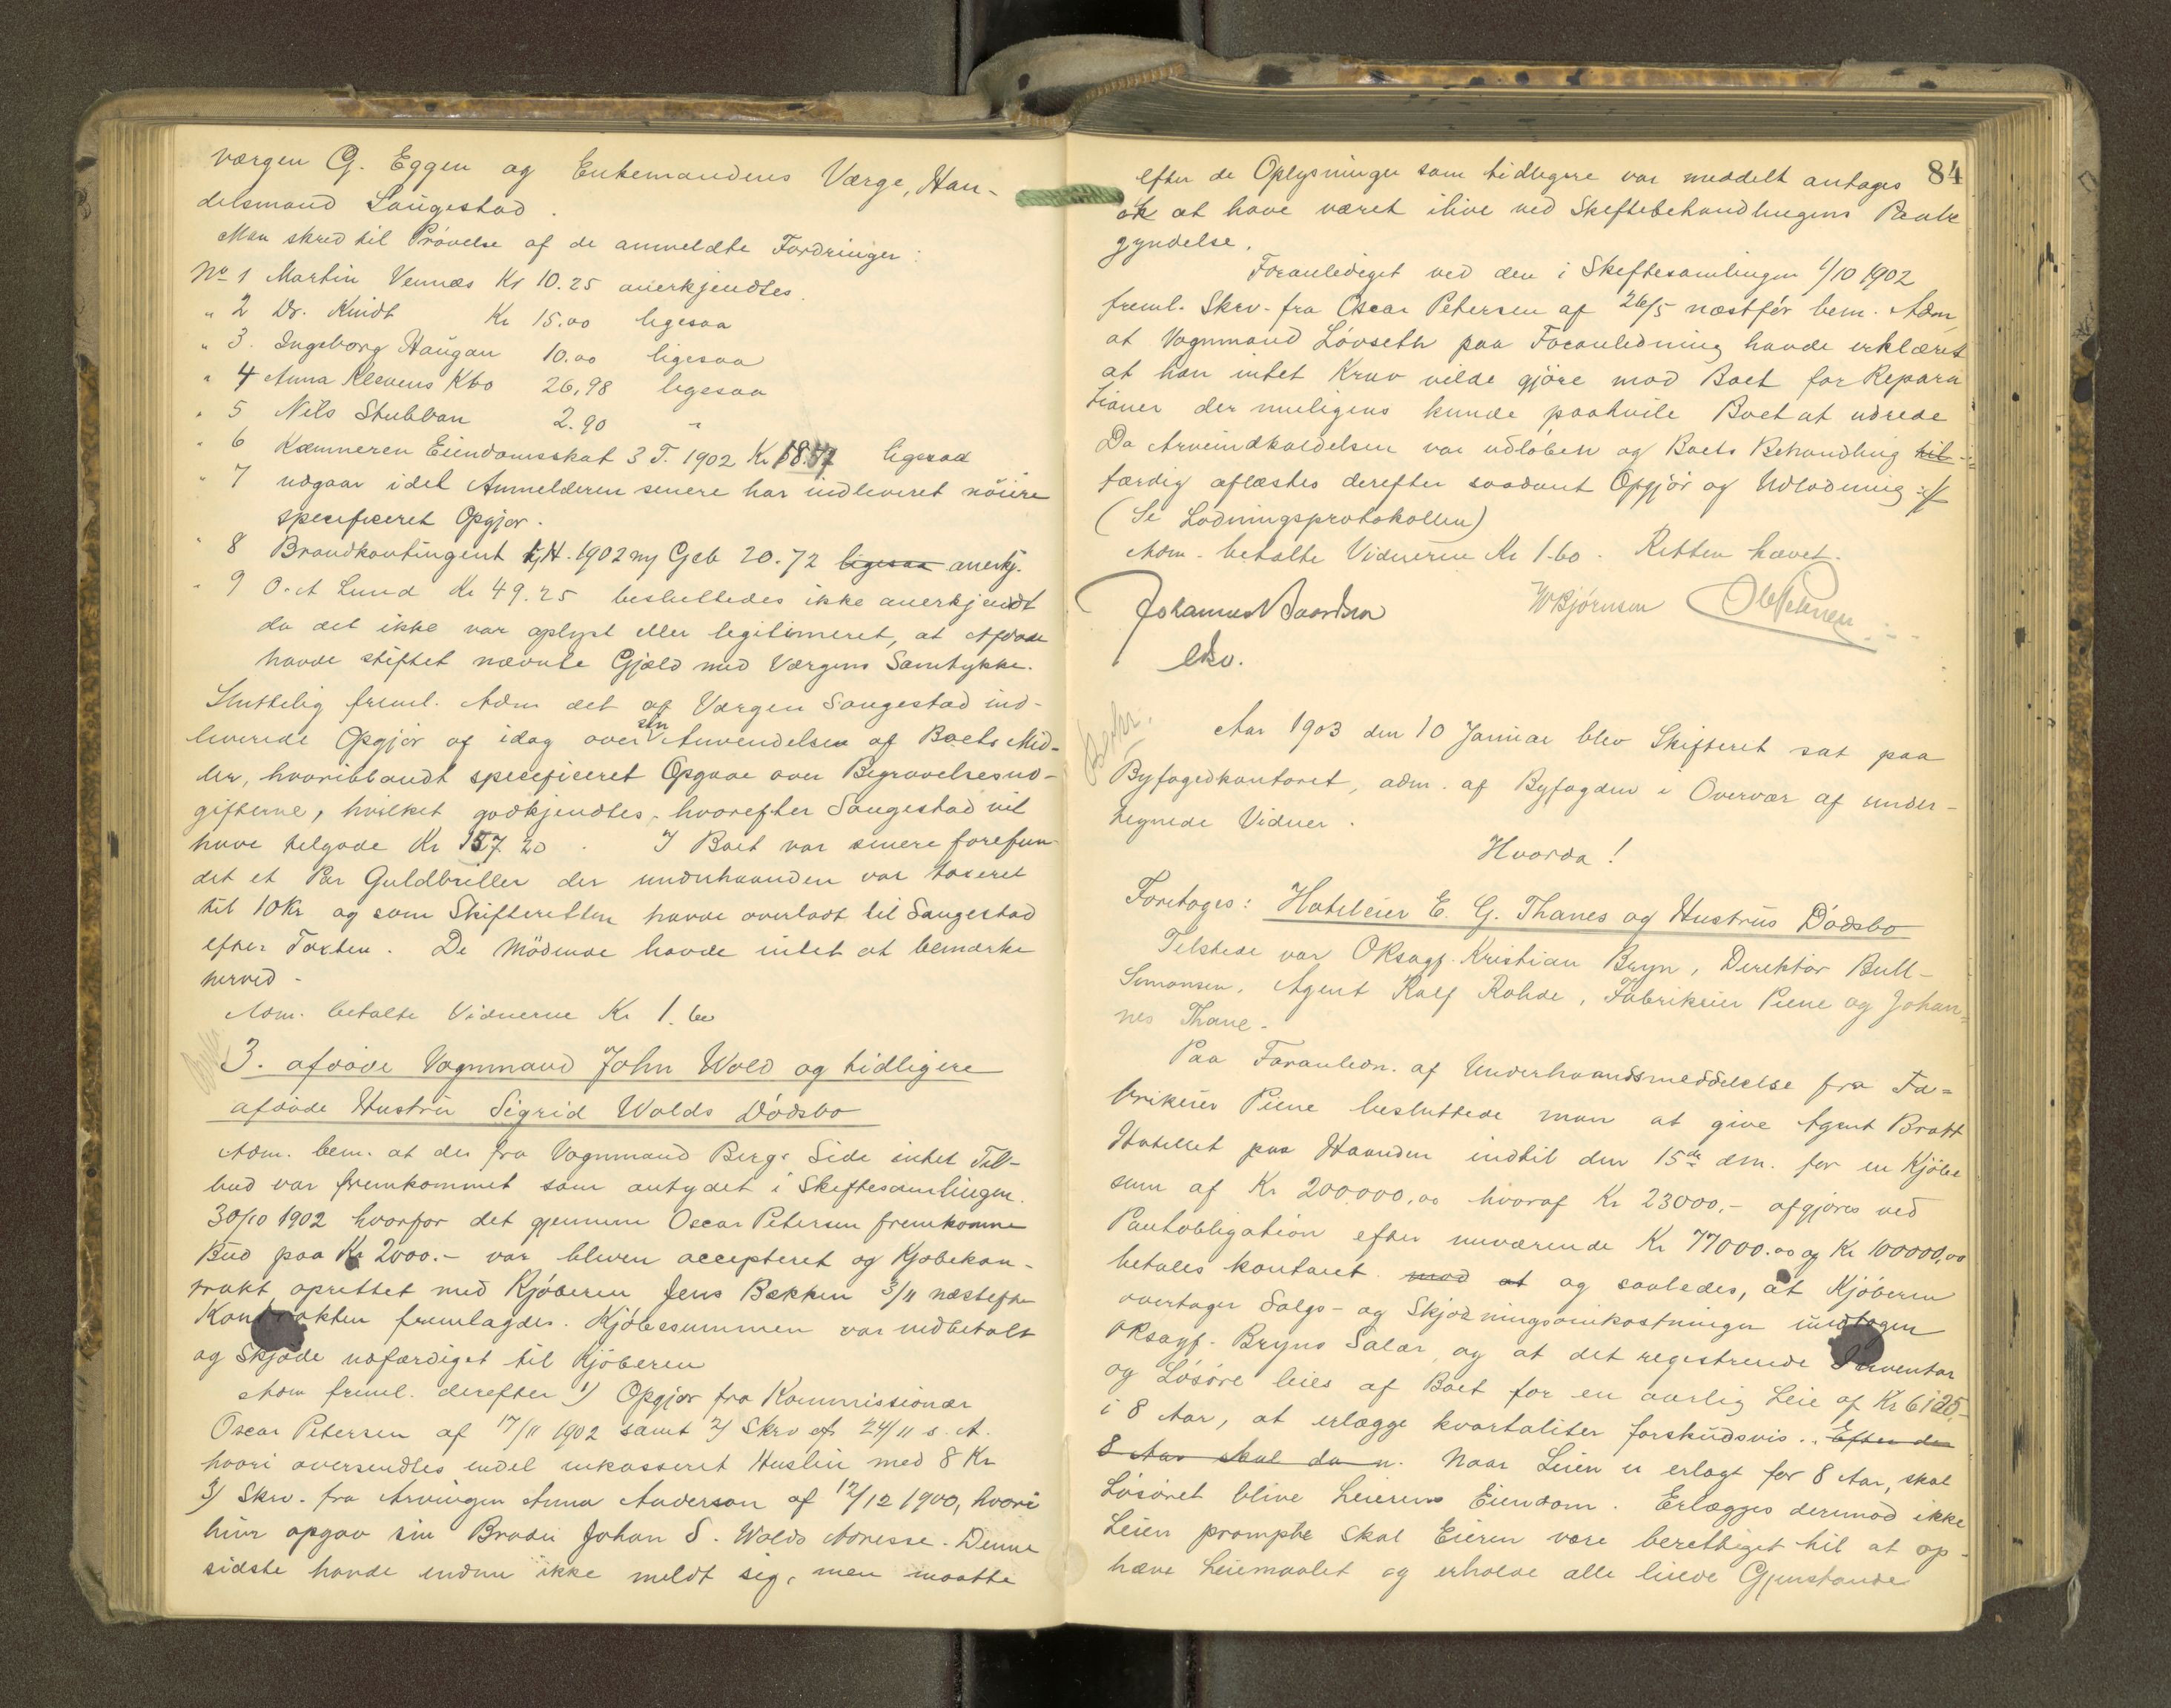 værgen G. Eggen og Enkemandens Værge, Han-
delsmand Saugestad.
Man skred til Prövelse af de anmeldte Fordringer:
No 1 Martin Vennes Kr 10.25 anerkjendtes
" 2 Dr. Knidt Kr 15.00 ligesaa
" 3. Ingeborg Haugan 10.00 ligesaa
" 4 Anna Klevens Kbo 26,98 ligesaa
" 5 Nils Stubban 2.90 "
" 6 Kæmneren Eiendomsskat 3 T. 1902 Kr ligesaa
" 7 udgaar idet Anmelderen senere har indleveret nöiere
specificeret Opgjör.
" 8 Brandkontingent 1902 ny Geb 20.72 ligesaa anerkj.
" 9 O. A Lund Kr 49.25 besluttedes ikke anerkjendt
da det ikke var oplyst eller legitimeret, at Afdöde
havde stiftet nævnte Gjæld med Værgens Samtykke.
Sluttelig freml. Adm det af Værgen Saugestad ind-
leverede Opgjör af idag over sin Anvendelse af Boets Mid-
ler, hvoriblandt specificeret Opgave over Begravelsesud-
gifterne, hvilket godkjendtes, hvorefter Saugestad vil
have tilgode Kr 157.20. I Boet var senere forefun-
det et Par Guldbriller der underhaanden var taxeret
til 10 Kr og som Skifteretten havde overladt til Saugestad
efter Taxten. De Mödende havde intet at bemærke
herved -
Adm. betalte Vidnerne Kr 1.60
3. afdöde Vognmand John Wold og tidligere
afdöde Hustru Sigrid Wolds Dödsbo
Adm. bem. at der fra Vognmand Bergs Side intet Til-
bud var fremkommet som antydet i Skiftesamlingen
30/10 1902 hvorfor det gjennem Oscar Petersen fremkomne
Bud paa Kr 2000.- var bleven accepteret og Kjöbekon-
trakt oprettet med Kjöberen Jens Bækken 3/11 næstefter
Kontrakten fremlagdes. Kjöbesummen var indbetalt
og Skjöde udfærdiget til Kjöberen
Adm freml. derefter 1) Opgjör fra Kommissionær
Oscar Petersen af 17/11 1902 samt 2) Skrv af 24/11 s. A.
hvori oversendtes endel inkasseret Husleie med 8 Kr
3) Skrv. fra Arvingen Anna Anderson af 12/12 1900, hvori
hun opgav sin Broder Johan S. Wolds Adresse. Denne
sidste havde endnu ikke meldt sig, men maatte
84
efter de Oplysninger som tidligere var meddelt antages
at have været ilive ved Skiftebehandlingens
gyndelse.
Foranlediget ved den i Skiftesamlingen 1/10 1902
freml. Skrv. fra Oscar Petersen af 26/5 næstför bem. Adm
at Vognmand Lövseth paa Foranledning havde erklæret
at han intet Krav vilde gjöre mod Boet for Repara
tioner der muligens kunde paahvile Boet at udrede
Da Arveindkaldelsen var udlöben og Boets Behandling til
færdig aflæstes derefter saadant Opgjör og Udlodning
(Se Lodningsprotokollen)
Adm. betalte Vidnerne Kr 1.60. Retten hævet.
WBjörnsen
Aar 1903 den 10 Januar blev Skifteret sat paa
Byfogedkontoret, adm. af Byfogden i Overvær af under-
tegnede Vidner.
Hvorda!
Foretages: Hoteleier E. G. Thanes og Hustrus Dödsbo
Tilstede var OKsagf. Kristian Bryn, Direktör Bull-
Simonsen, Agent Ralf Rohde, Fabrikeier Piene og Johan-
nes Thane.
Paa Foranledn. af Underhaandsmeddelelse fra Fa-
brikeier Piene besluttede man at give Agent Bratt
Hotellet paa Haanden indtil den 15de dm. for en Kjöbe
sum af Kr 200000.00 hvoraf Kr 23000.- afgjöres ved
Pantobligation efter nuværende Kr 77000.00 og Kr 100000,00
betales kontant mod at og saaledes, at Kjöberen
overtager Salgs- og Skjödningsomkostninger undtagen
OKsagf. Bryns Salær, og at det registrerede Inventar
og Lösöre leies af Boet for en aarlig Leie af Kr 6125,-
i 8 Aar, at erlægge kvartaliter forskudsvis. Efter de
8 Aar skal da n. Naar Leien er erlagt for 8 Aar, skal
Lösöret blive Leierens Eiendom. Erlægges derimod ikke
Leien prompte skal Eieren være berettiget til at op-
hæve Leiemaalet og erholde alle leiede Gjenstande